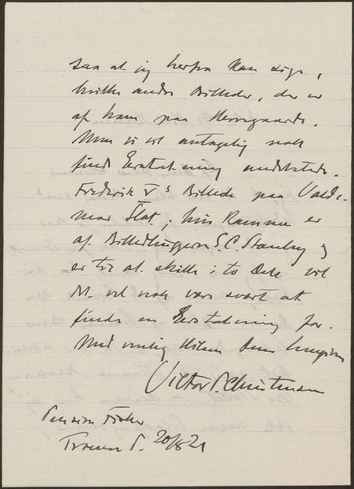 saa at jeg herfra kan sige,
hvilke andre Billeder, der er
af ham paa Herregaarde.
Men vi vil antagelig nok
finde Erstatning andetsteds.
Frederik V s Billede paa Valde-
mar Slot, hvis Ramme er
af Billedhuggeren S. C. Stanley og
er til at skille i to Dele vil
det vel nok være svært at
finde en Erstatning for.
Med venlig Hilsen Deres
Victor P. Christensen
Pension
20/8 21